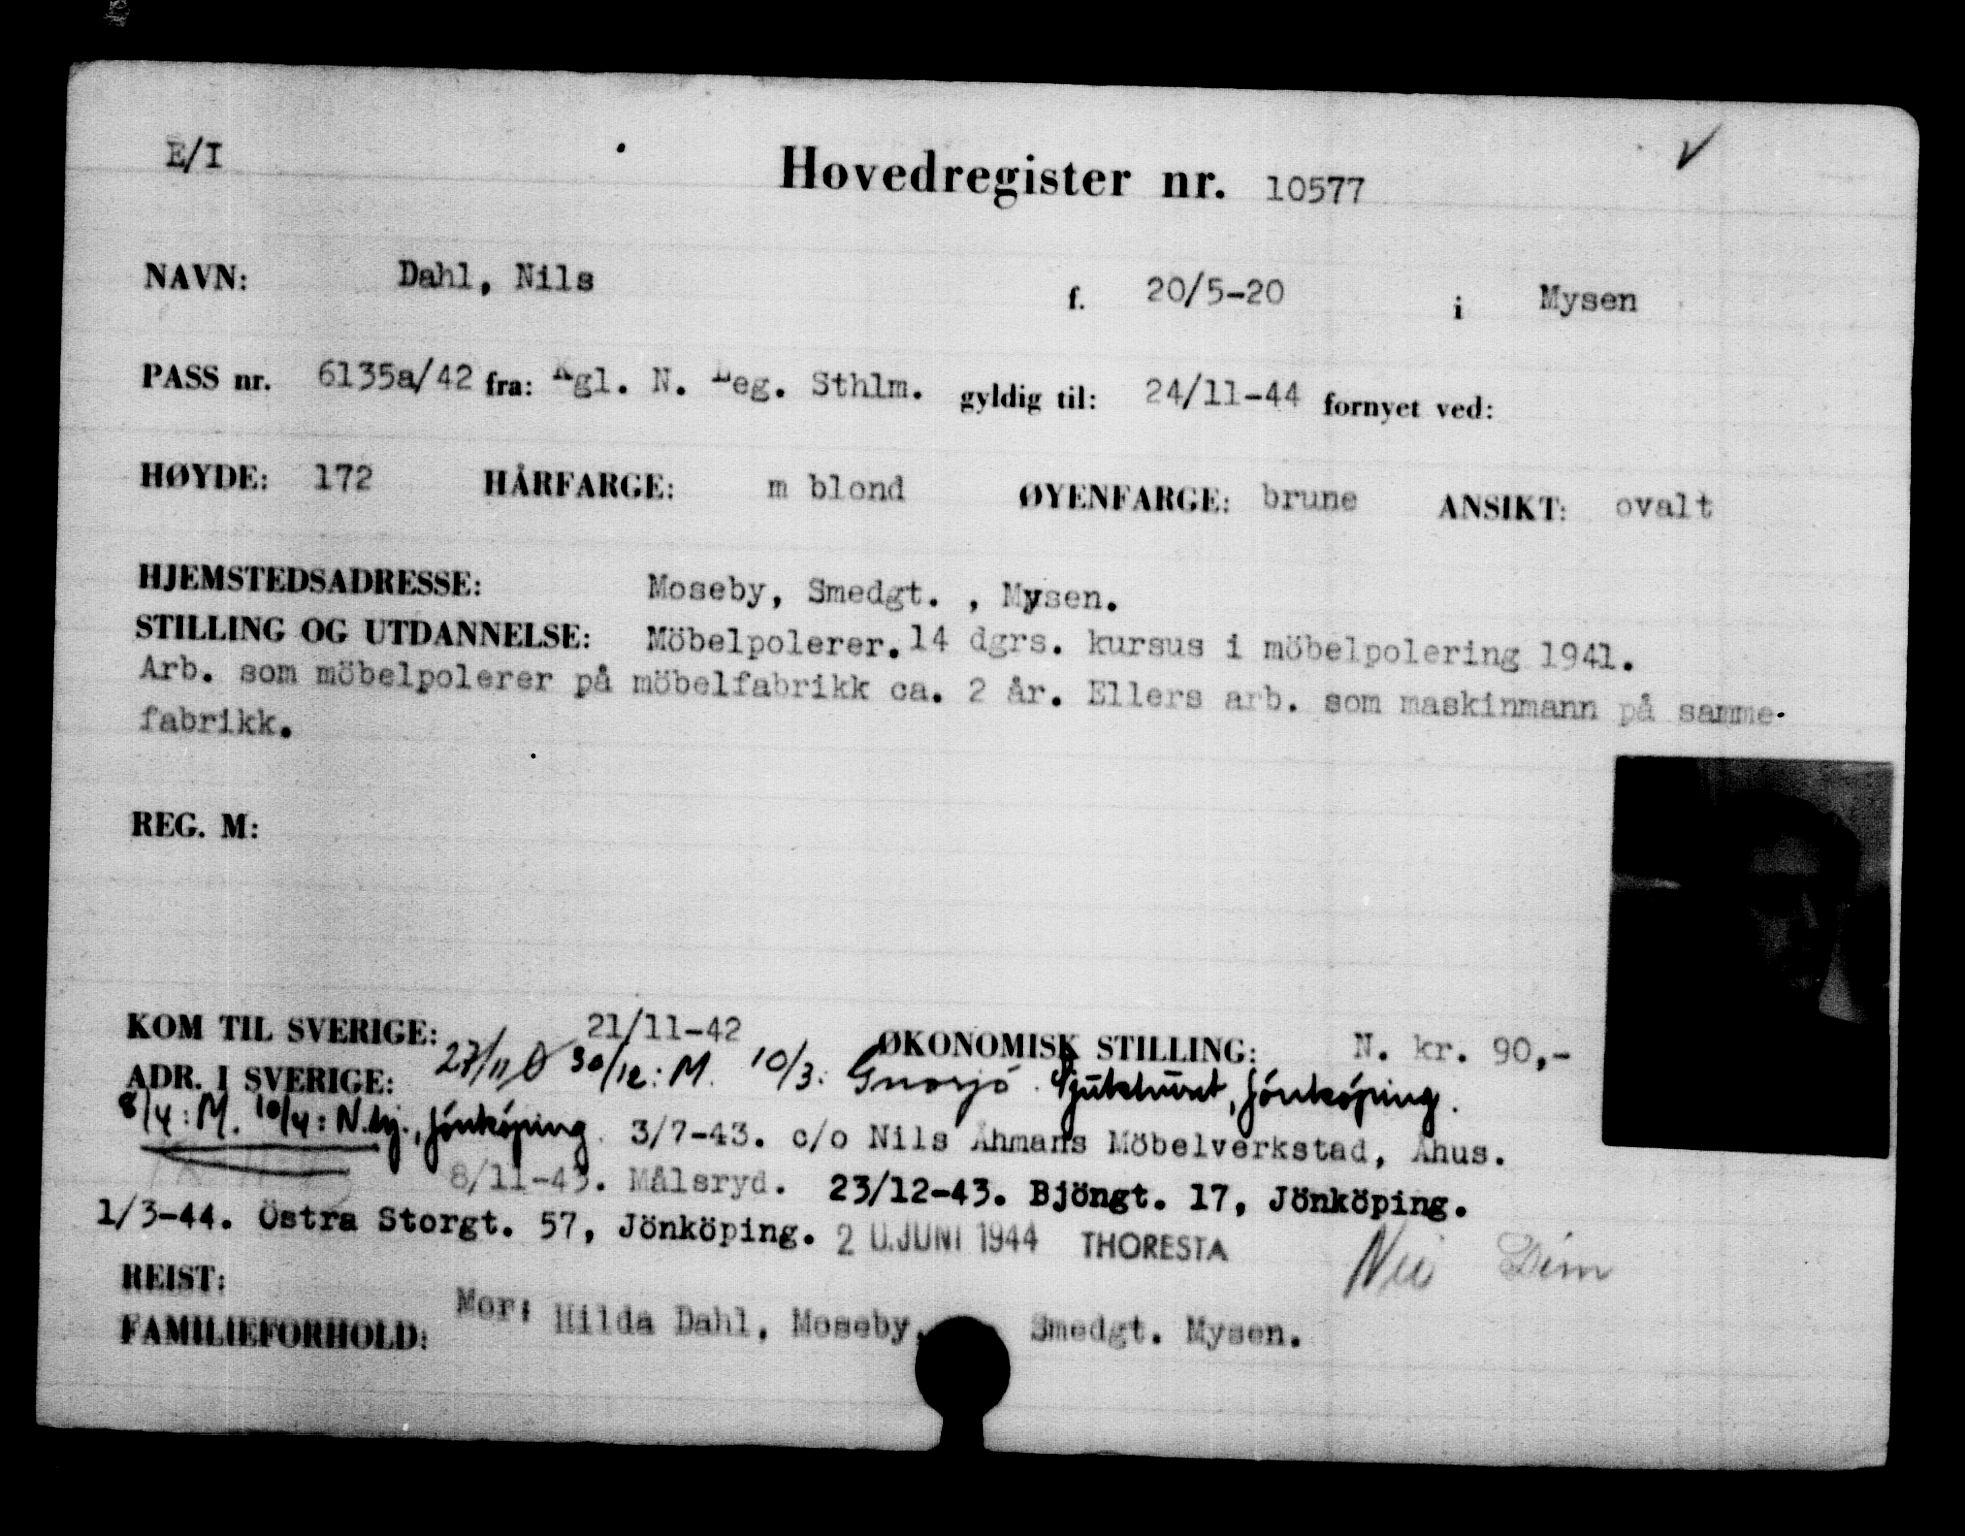 E/I
Hovedregister nr. 10577
NAVN: Dahl, Nils f. 20/5-20 i Mysen
PASS nr. 6135a/42 fra: Kgl. N. Leg. Sthlm. gyldig til: 24/11-44 fornyet ved:
HØYDE: 172 HÅRFARGE: m blond ØYENFARGE: brune ANSIKT: ovalt
HJEMSTEDSADRESSE: Moseby, Smedgt. , Mysen.
STILLING OG UTDANNELSE: Möbelpolerer. 14 dgrs. kursus i möbelpolering 1941.
Arb. som möbelpolerer på möbelfabrikk ca. 2 år. Ellers arb. som maskinmann på samme
fabrikk.
REG. M:
KOM TIL SVERIGE: 21/11-42 ØKONOMISK STILLING: N. kr. 90,-
ADR. I SVERIGE: 27/11 Ö 30/12: M. 10/3: Gnosjö. Jönköping.
8/4: M. 10/4: Jönköping. 3/7-43. c/o Nils Åhmans Möbelverkstad, Åhus.
8/11-43. Målsryd. 23/12-43. Bjöngt. 17, Jönköping.
1/3-44. Östra Storgt. 57, Jönköping. 20. JUNI 1944 THORESTA
REIST:
FAMILIEFORHOLD: Mor: Hilda Dahl, Moseby, Smedgt. Mysen.